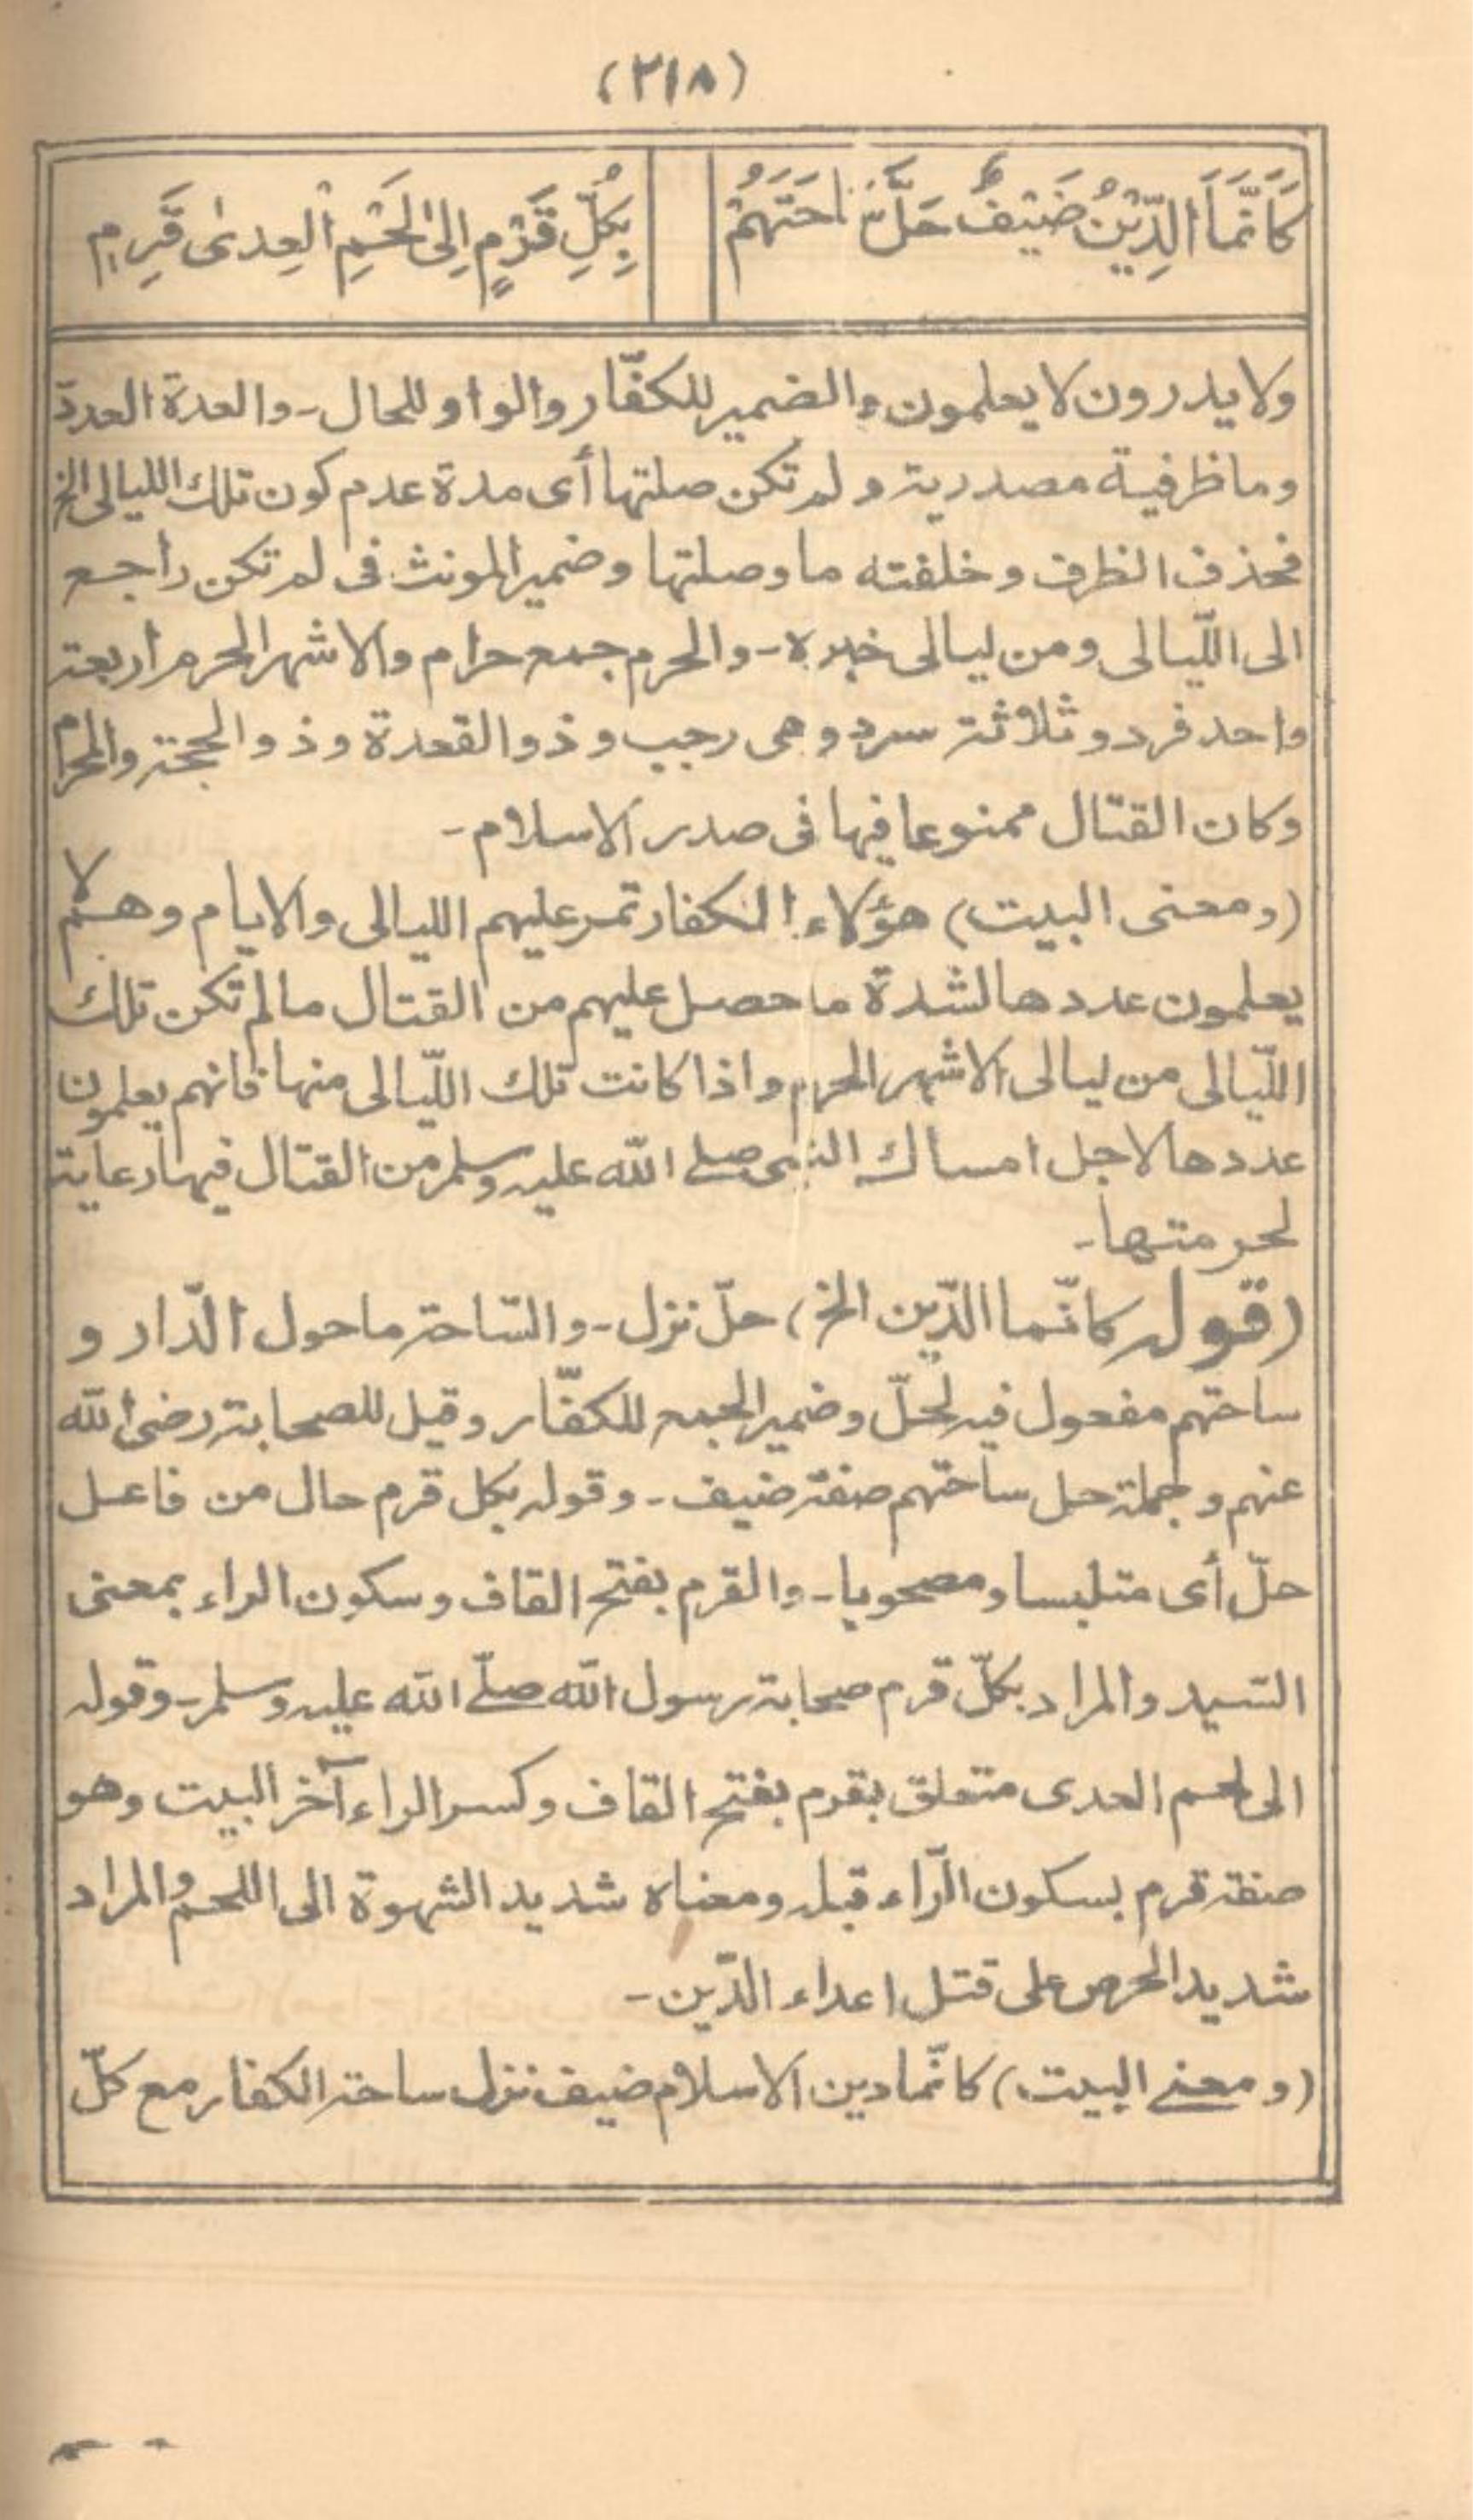 (٢١٨)
كَأَنَّمَا الدِّيْنُ ضَيْفٌ حَلَّ سَاحَتَهُمْ
بِكُلِّ قَرْمٍ اِلىٰ لَحْمِ الْعِدىٰ قَرِمِ
ولا يدرون لا يعلمون والضمير للكفّار والواو للحال - والعدة العدد
وما ظرفية مصدرية و لم تكن صلتها أى مدة عدم كون تلك الليالى الخ
فحذف الظرف و خلفته ما وصلتها و ضمير المونث فى لم تكن راجع
الى اللّيالى و من ليالى خبره - والحرم جمع حرام والاشهر الحرم اربعة
واحد فرد و ثلاثة سرد و هى رجب و ذو القعدة و ذو الحجة والمحرم
وكان القتال ممنوعا فيها فى صدر الاسلام -
(ومعنى البيت) هؤلاء الكفار تمر عليهم الليالى والايام وهم لا
يعلمون عددها لشدة ما حصل عليهم من القتال ما لم تكن تلك
اللّيالى من ليالى الاشهر الحرم واذا كانت تلك اللّيالى منها فانهم يعلمون
عددها لاجل امساك النبى صلى الله عليه وسلم من القتال فيها رعاية
لحرمتها -
(قوله كانّما الدّين الخ) حلّ نزل - والسّاحة ما حول الدّار و
ساحتهم مفعول فيه لحلّ وضمير الجمع للكفّار وقيل للصحابة رضى الله
عنهم و جملة حل ساحتهم صفة ضيف - وقوله بكل قرم حال من فاعل
حلّ أى متلبسا ومصحوبا - والقرم بفتح القاف وسكون الراء بمعنى
السّيد والمراد بكلّ قرم صحابة رسول الله صلّى الله عليه وسلم - وقوله
الى لحم العدى متعلق بقرم بفتح القاف وكسر الراء آخر البيت وهو
صفة قرم بسكون الرّاء قبله ومعناه شديد الشهوة الى اللحم والمراد
شديد الحرص على قتل اعداء الدّين -
(ومعنى البيت) كانّما دين الاسلام ضيف نزل ساحة الكفار مع كلّ